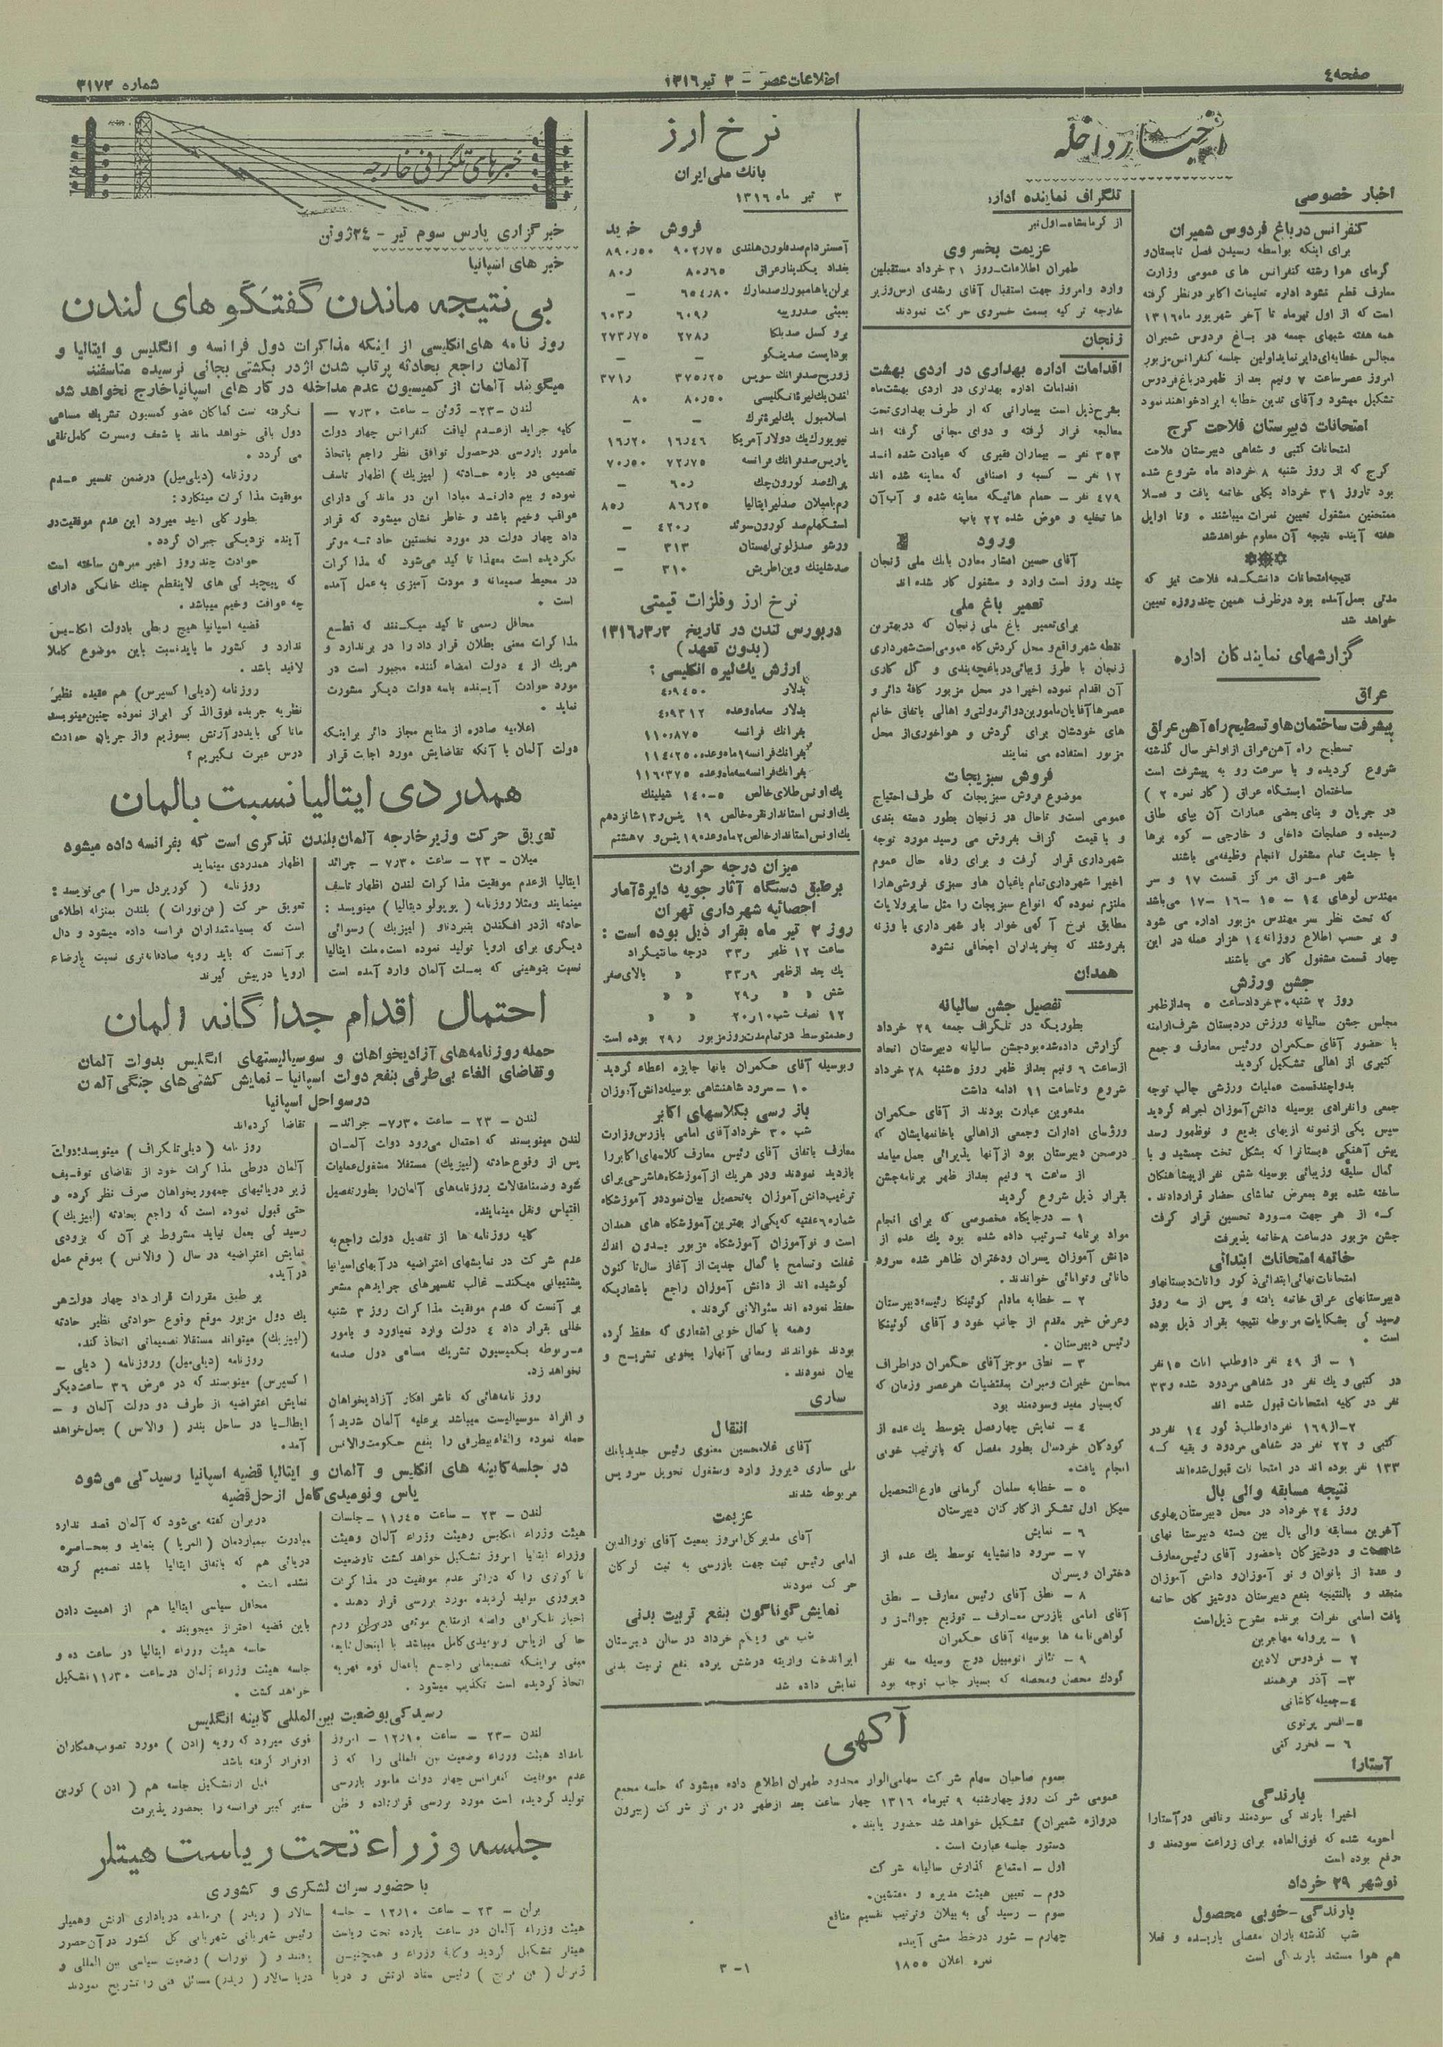 صفحه٤
اطلاعات عصر - ۳ تیر ۱۳۱٦
شماره ۳۱۷۳
اخبار داخله
اخبار خصوصی
کنفرانس در باغ فردوس شمیران
برای اینکه بواسطه رسیدن فصل تابستان و
گرمای هوا رشته کنفرانس های عمومی وزارت
معارف قطع نشود اداره تعلیمات اکابر در نظر گرفته
است که از اول تیرماه تا آخر شهریور ماه ۱۳۱٦
همه هفته شبهای جمعه در باغ فردوس شمیران
مجالس خطابه‌ای دایر نماید اولین جلسه کنفرانس مزبور
امروز عصر ساعت ۷ ونیم بعد از ظهر در باغ فردوس
تشکیل میشود و آقای تدین خطابه ایراد خواهند نمود
امتحانات دبیرستان فلاحت کرج
امتحانات کتبی و شفاهی دبیرستان فلاحت
کرج که از روز شنبه ۸ خرداد ماه شروع شده
بود تا روز ۳۱ خرداد بکلی خاتمه یافت و فعلا
ممتحنین مشغول تعیین نمرات میباشند . وتا اوایل
هفته آینده نتیجه آن معلوم خواهد شد
نتیجه امتحانات دانشکده فلاحت نیز که
مدتی بعمل آمده بود در ظرف همین چند روزه تعیین
خواهد شد
گزارشهای نمایندگان اداره
عراق
پیشرفت ساختمان‌ها و تسطیح راه آهن عراق
تسطیح راه آهن عراق از اواخر سال گذشته
شروع گردیده و با سرعت رو به پیشرفت است
ساختمان ایستگاه عراق ( کار نمره ۲ )
در جریان و بنای بعضی عمارات آن بپای طاقی
رسیده و عملیات داخلی و خارجی - کوه برها
با جدیت تمام مشغول انجام وظیفه می باشند
شهر عراق مرکز قسمت ۱۷ و سر
مهندس لوهای ۱٤ - ۱٥ - ۱٦ - ۱۷ می‌باشد
که تحت نظر سر مهندس مزبور اداره می شود
و بر حسب اطلاع روزانه ۱٤ هزار عمله در این
چهار قسمت مشغول کار می باشند
جشن ورزش
روز ۲ شنبه ۳۰ خرداد ساعت ٥ بعد از ظهر
مجلس جشن سالیانه ورزش در دبستان شرف ارامنه
با حضور آقای حکمران ورئیس معارف و جمع
کثیری از اهالی تشکیل گردید
بدوا چند قسمت عملیات ورزشی جالب توجه
جمعی وانفرادی بوسیله دانش آموزان اجراء گردید
سپس یکی از نمونه ازیهای بدیع و نوظهور رسد
پیش آهنگی دبستان را که بشکل تخت جمشید و با
کمال سلیقه وزیبائی بوسیله شش نفر از پیشاهنگان
ساخته شده بود بمعرض تماشای حضار قرار دادند .
که از هر جهت مورد تحسین قرار گرفت
جشن مزبور در ساعت ۸ خاتمه پذیرفت
خاتمه امتحانات ابتدائی
امتحانات نهائی ابتدائی ذکور واناث دبستانها و
دبیرستانهای عراق خاتمه یافته و پس از سه روز
رسیدگی بشکایات مربوطه نتیجه بقرار ذیل بوده
است .
۱ - از ٤۹ نفر داوطلب اناث ۱٥ نفر
در کتبی و یك نفر در شفاهی مردود شده و ۳۳
نفر در کلیه امتحانات قبول شده اند
۲ - از ۱٦۹ نفر داوطلب ذکور ۱٤ نفر در
کتبی و ۲۲ نفر در شفاهی مردود و بقیه که
۱۳۳ نفر بوده اند در امتحانات قبول شده‌اند
نتیجه مسابقه والی بال
روز ۲٤ خرداد در محل دبیرستان پهلوی
آخرین مسابقه والی بال بین دسته دبیرستا نهای
شاهدخت و دوشیزگان باحضور آقای رئیس معارف
و عده‌ از بانوان و نو آموزان و دانش آموزان
منعقد و بالنتیجه بنفع دبیرستان دوشیزگان خاتمه
یافت اسامی نفرات برنده بشرح ذیل است
۱ - پروانه مهاجرین
۲ - فردوس لادین
۳ - آذر فرهمند
٤ - جمیله کاشانی
٥ - افسر پرتوی
٦ - فخر رکنی
آستارا
بارندگی
اخیرا بارندگی سودمند ونافعی در آستارا و
حومه شده که فوق‌العاده برای زراعت سودمند و
بموقع بوده است
نوشهر ۲۹ خرداد
بارندگی - خوبی محصول
شب گذشته باران مفصلی باریده و فعلا
هم هوا مستعد بارندگی است
تلگراف نماینده اداره
از کرمانشاه - اول تیر
عزیمت بخسروی
طهران اطلاعات - روز ۳۱ خرداد مستقبلین
وارد وامروز جهت استقبال آقای رشدی ارس وزیر
خارجه ترکیه بسمت خسروی حرکت نمودند
زنجان
اقدامات اداره بهداری در اردی بهشت
اقدامات اداره بهداری در اردی بهشت‌ماه
بشرح ذیل است بیمارانی که از طرف بهداری تحت
معالجه قرار گرفته و دوای مجانی گرفته اند
۳٥۳ نفر - بیماران فقیری که عیادت شده اند
۱۲ نفر - کسبه و اصنافی که معاینه شده اند
٤۷۹ نفر - حمام هائیکه معاینه شده و آب آن
ها تخلیه و عوض شده ۲۲ باب
ورود
آقای حسین افشار معاون بانك ملی زنجان
چند روز است وارد و مشغول کار شده اند
تعمیر باغ ملی
برای تعمیر باغ ملی زنجان که در بهترین
نقطه شهر واقع و محل گردش گاه عمومی است شهرداری
زنجان با طرز زیبائی در باغچه‌بندی و گل کاری
آن اقدام نموده اخیرا در محل مزبور کافه دائر و
عصرها آقایان مامورین دوائر دولتی و اهالی باتفاق خانم
های خودشان برای گردش و هواخوری از محل
مزبور استفاده می نمایند
فروش سبزیجات
موضوع فروش سبزیجات که طرف احتیاج
عمومی است و تا حال در زنجان بطور دسته بندی
و با قیمت گزاف بفروش می رسید مورد توجه
شهرداری قرار گرفت و برای رفاه حال عموم
اخیرا شهرداری تمام باغبان های و سبزی فروشی هارا
ملتزم نموده که انواع سبزیجات را مثل سایر ولایات
مطابق نرخ آگهی خوار بار شهرداری با وزنه
بفروشند که بخریداران اجحافی نشود
همدان
تفصیل جشن سالیانه
بطوریکه در تلگراف جمعه ۲۹ خرداد
گزارش داده شده بود جشن سالیانه دبیرستان اتحاد
از ساعت ٦ ونیم بعد از ظهر روز ٥ شنبه ۲۸ خرداد
شروع وتا ساعت ۱۱ ادامه داشت
مدعوین عبارت بودند از آقای حکمران
ورؤسای ادارات وجمعی از اهالی باخانمهایشان که
در صحن دبیرستان بود از آنها پذیرائی بعمل میامد
از ساعت ٦ ونیم بعد از ظهر برنامه جشن
بقرار ذیل شروع گردید
۱ - در جایگاه مخصوصی که برای انجام
مواد برنامه ترتیب داده شده بود یك عده از
دانش آموزان پسران ودختران ظاهر شده سرود
دانائی و توانائی خواندند .
۲ - خطابه مادام کوئینکا رئیسه دبیرستان
وعرض خیر مقدم از جانب خود و آقای کوئینکا
رئیس دبیرستان .
۳ - نطق موجز آقای حکمران در اطراف
محاسن خیرات ومبرات بمقتضیات هر عصر وزمان که
که بسیار مفید وسودمند بود
٤ - نمایش چهار فصل بتوسط یك عده از
کودکان خردسال بطور مفصل که باترتیب خوبی
انجام یافت .
٥ - خطابه سلمان گرمانی فارغ التحصیل
سیکل اول تشکر از کارکنان دبیرستان
٦ - نمایش
۷ - سرود دانشپایه توسط یك عده از
دختران وپسران
۸ - نطق آقای رئیس معارف - نطق
آقای امامی بازرس معارف - توزیع جوائز و
گواهی نامه ها بوسیله آقای حکمران
۹ - تئاتر اتومبیل دوج وسیله سه نفر
کودك محصل ومحصله که بسیار جالب توجه بود
نرخ ارز
بانك ملی ایران
۳ تیر ماه ۱۳۱٦
فروش خرید
آمستردام صد فلورن هلندی ۹۰۲٫۷٥ ۸۹۰٫٥۰
بغداد یکدینار عراق ۸۰٫٦٥ ۸۰٫
برلن یا هامبورک صدمارك ٦٥٤٫۸۰ -
بمبئی صد روپیه ٦۰۹٫ ٦۰۳٫
بروکسل صد بلگا ۲۷۸٫ ۲۷۳٫۷٥
بوداپست صد پنگو - -
زوریخ صد فرانك سویس ۳۷٥٫۲٥ ۳۷۱٫
لندن یك لیره انگلیسی ۸۰٫٥۰ ۸۰
اسلامبول یك لیره ترك - -
نیویورك یك دولار آمریکا ۱٦٫٤٦ ۱٦٫۲۰
پاریس صد فرانك فرانسه ۷۲٫۷٥ ۷۰٫٥۰
پراگ صد کورون چك ٦۰٫ -
رم یا میلان صد لیر ایتالیا ۸٦٫۲٥ ۸٥٫
استکهلم صد کورون سوئد ٤۲۰٫ -
ورشو صد زلوتی لهستان ۳۱۳ -
صد شلینك وین اطریش ۳۱۰ -
نرخ ارز و فلزات قیمتی
در بورس لندن در تاریخ ۱۳۱٦٫۳٫۲
(بدون تعهد)
ارزش یك لیره انگلیسی :
بدلار ٤٫۹٤٥۰
بدلار سه ماه وعده ٤٫۹۳۱۲
بفرانك فرانسه ۱۱۰٫۸۷٥
بفرانك فرانسه ۱ ماه وعده ۱۱٤٫۲٥۰
بفرانك فرانسه سه ماه وعده ۱۱٦٫۳۷٥
یك اونس طلای خالص ٥-۱٤۰ شیلینك
یك اونس استاندار نقره خالص ۱۹ پنس و ۱۳ شانزدهم
یك اونس استاندار خالص ۲ ماه وعده ۱۹ پنس و ۷ هشتم
میزان درجه حرارت
بر طبق دستگاه آثار جویه دایرهٔ آمار
احصائیه شهرداری تهران
روز ۲ تیر ماه بقرار ذیل بوده است :
ساعت ۱۲ ظهر ۳۳٫ درجه سانتیگراد
یك بعد از ظهر ۳۳٫۹ « بالای صفر
شش « « ۲۹٫ « «
۱۲ نصف شب ۲۰٫۱۰ « «
وحد متوسط در تمام مدت روز مزبور ۲۹٫ بوده است
وبوسیله آقای حکمران بانها جایزه اعطاء گردید
۱۰ - سرود شاهنشاهی بوسیله دانش آموزان
بازرسی بکلاسهای اکابر
شب ۳۰ خرداد آقای امامی بازرس وزارت
معارف باتفاق آقای رئیس معارف کلاسهای اکابر را
بازدید نمودند ودر هریك از آموزشگاه ها شرحی برای
ترغیب دانش آموزان به تحصیل بیان نمودند در آموزشگاه
شماره ٦ عفتیه که یکی از بهترین آموزشگاه های همدان
است و نو آموزان آموزشگاه مزبور بدون اندك
غفلت وتسامح با کمال جدیت از آغاز سال تا کنون
کوشیده اند از دانش آموزان راجع باشعاریکه
حفظ نموده اند سئوالاتی کردند .
وهمه با کمال خوبی اشعاری که حفظ کرده
بودند خواندند ومعانی آنهارا بخوبی تشریح و
بیان نمودند .
ساری
انتقال
آقای غلامحسین معنوی رئیس جدید بانك
ملی ساری دیروز وارد ومشغول تحویل سرویس
مربوطه شدند
عزیمت
آقای مدیر کل امروز بمعیت آقای نورالدین
امامی رئیس ثبت جهت بازرسی به ثبت گرگان
حرکت نمودند
نمایش گوناگون بنفع تربیت بدنی
شب سی ویکم خرداد در سالن دبیرستان
ایراندخت واریته درشش پرده بنفع تربیت بدنی
نمایش داده شد
آگهی
بعموم صاحبان سهام شرکت سهامی الوار محدود طهران اطلاع داده میشود که جلسه مجمع
عمومی شرکت روز چهارشنبه ۹ تیرماه ۱۳۱٦ چهار ساعت بعد از ظهر در مرکز شرکت (بیرون
دروازه شمیران) تشکیل خواهد شد حضور یابند .
دستور جلسه عبارت است .
اول - استماع گذارش سالیانه شرکت
دوم - تعیین هیئت مدیره و مفتشین .
سوم - رسیدگی به بیلان وترتیب تقسیم منافع
چهارم - شور در خط مشی آینده
نمره اعلان ۱۸٥٥
۱-۳
خبرهای تلگرافی خارجه
خبرگزاری پارس سوم تیر - ۲٤ ژوئن
خبر های اسپانیا
بی نتیجه ماندن گفتگوهای لندن
روزنامه های انگلیسی از اینکه مذاکرات دول فرانسه و انگلیس و ایتالیا و
آلمان راجع بحادثه پرتاب شدن اژدر بکشتی بجائی نرسیده متاسفند
میگویند آلمان از کمیسیون عدم مداخله در کارهای اسپانیا خارج نخواهد شد
لندن -۲۳- ژوئن - ساعت ۷٫۳۰ -
کلیه جراید از عدم لیاقت کنفرانس چهار دولت
مامور بازرسی درحصول توافق نظر راجع باتخاذ
تصمیمی در باره حادثه ( لیپزیك ) اظهار تاسف
نموده و بیم دارند مبادا این در ماندگی دارای
عواقب وخیم باشد و خاطر نشان میشود که قرار
داد چهار دولت در مورد نخستین حادثه موثر
نگردیده است معهذا تاکید می‌شود که مذاکرات
در محیط صمیمانه و مودت آمیزی به‌عمل آمده
است .
محافل رسمی تاکید میکنند که قطع
مذاکرات معنی بطلان قرار داد را در برندارد و
هریك از ٤ دولت امضاء کننده مجبور است در
مورد حوادث آینده باسه دولت دیگر مشورت
نماید .
اعلامیه صادره از منابع مجاز دائر براینکه
دولت آلمان با آنکه تقاضایش مورد اجابت قرار
نگرفته است کماکان عضو کمسیون تشریك مساعی
دول باقی خواهد ماند با شعف ومسرت کامل تلقی
می گردد .
روزنامه (دیلی‌میل) درضمن تفسیر عدم
موفقیت مذاکرات مینگارد :
بطور کلی امید میرود این عدم موفقیت در
آینده نزدیکی جبران گردد .
حوادث چند روز اخیر مبرهن ساخته است
که پیچیدگی های لاینقطع جنك خانگی دارای
چه عواقب وخیم میباشد .
قضیه اسپانیا هیچ ربطی بادولت انگلیس
ندارد و کشور ما بایدنسبت باین موضوع کاملا
لاقید باشد .
روزنامه (دیلی اکسپرس) هم عقیده نظیر
نظریه جریده فوق‌الذکر ابراز نموده چنین مینویسد
ماتاکی باید درآتش بسوزیم واز جریان حوادث
درس عبرت نگیریم ؟
همدردی ایتالیا نسبت بالمان
تعویق حرکت وزیرخارجه آلمان بلندن تذکری است که بفرانسه داده میشود
میلان - ۲۳ - ساعت ۷٫۳۰ - جرائد
ایتالیا از عدم موفقیت مذاکرات لندن اظهار تاسف
مینمایند ومثلا روزنامه ( پوپولو دیتالیا ) مینویسد :
حادثه اژدر افکندن بنبردناو ( لیپزیك ) رسوائی
دیگری برای اروپا تولید نموده است . ملت ایتالیا
نسبت بتوهینی که بملت آلمان وارد آمده است
اظهار همدردی مینماید
روزنامه ( کوریردل سرا ) می‌نویسد :
تعویق حرکت (فن‌نورات ) بلندن بمنزله اطلاعی
است که بسیاستمداران فرانسه داده میشود و دال
بر آنست که باید رویه صادقانه‌تری نسبت باوضاع
اروپا درپیش گیرند
احتمال اقدام جداگانه آلمان
حمله روزنامه‌های آزادیخواهان و سوسیالیستهای انگلیس بدولت آلمان
وتقاضای الغاء بی‌طرفی بنفع دولت اسپانیا - نمایش کشتی‌های جنگی آلمان
در سواحل اسپانیا
لندن - ۲۳ - ساعت ۷٫۳۰ - جرائد -
لندن مینویسند که احتمال می‌رود دولت آلمان
پس از وقوع حادثه (لیپزیك) مستقلا مشغول عملیات
شود وضمنا مقالات روزنامه های آلمان را بطور تفصیل
اقتباس ونقل مینمایند .
کلیه روزنامه ها از تفصیل دولت راجع به
عدم شرکت در نمایشهای اعتراضیه در آبهای اسپانیا
پشتیبانی میکند - غالب تفسیرهای جراید هم مشعر
بر آنست که عدم موفقیت مذاکرات روز ۳ شنبه
خللی بقرار داد ٤ دولت وارد نمیاورد و بامور
مربوطه بکمیسیون تشریك مساعی دول صدمه
نخواهد زد .
روزنامه‌هائی که ناشر افکار آزادیخواهان
و افراد سوسیالیست میباشد برعلیه آلمان شدیداً
حمله نموده والغاء بیطرفی را بنفع حکومت والانس
تقاضا کرده‌اند
روزنامه (دیلی‌تلگراف ) مینویسد : دولت
آلمان درطی مذاکرات خود از تقاضای توقیف
زیر دریائیهای جمهوریخواهان صرف نظر کرده و
حتی قبول نموده است که راجع بحادثه (لیپزیك )
رسیدگی بعمل نیاید مشروط بر آن که بزودی
نمایش اعتراضیه در سال ( والانس ) بموقع عمل
درآید .
بر طبق مقررات قرارداد چهار دولت هر
یك دول مزبور موقع وقوع حوادثی نظیر حادثه
(لیپزیك ) میتواند مستقلا تصمیماتی اتخاذ کند .
روزنامه (دیلی‌میل) وروزنامه ( دیلی -
اکسپرس) مینویسند که در عرض ۳٦ ساعت دیگر
نمایش اعتراضیه از طرف دو دولت آلمان و -
ایطالیا در ساحل بندر ( والانس ) بعمل خواهد
آمد .
در جلسه کابینه های انگلیس و آلمان و ایتالیا قضیه اسپانیا رسیدگی می‌شود
یاس و نومیدی کامل از حل قضیه
لندن - ۲۳ - ساعت ۱۱٫٤٥ - جلسات
هیئت وزراء انگلیس وهیئت وزراء آلمان وهیئت
وزراء ایتالیا امروز تشکیل خواهد گشت تا وضعیت
ناگواری را که دراثر عدم موفقیت در مذاکرات
دیروزی تولید گردیده مورد بررسی قرار دهند .
اخبار تلگرافی واصله ازمنابع موثقی دربرلن ورم
حاکی ازیاس ونومیدی کامل میباشد با اینحال شایعه
مبنی براینکه تصمیماتی راجع باعمال قوه قهریه
اتخاذ گردیده است تکذیب میشود .
دربرلن گفته می‌شود که آلمان قصد ندارد
مبادرت ببمباردمان ( المریا ) بنماید و بمحاصره
دریائی هم که باتفاق ایتالیا باشد تصمیم گرفته
نشده است .
محافل سیاسی ایتالیا هم از اهمیت دادن
باین قضیه احتراز میجویند .
جلسه هیئت وزراء ایتالیا در ساعت ده و
جلسه هیئت وزراء آلمان درساعت ۱۱٫۳۰ تشکیل
خواهد گشت .
رسیدگی بوضعیت بین‌المللی کابینه انگلیس
لندن -۲۳ - ساعت ۱۲٫۱۰ - امروز
بامداد هیئت وزراء وضعیت بین المللی را که از
عدم موفقیت کنفرانس چهار دولت مامور بازرسی
تولید گردیده است مورد بررسی قرارداده و ظن
قوی میرود که رویه (ادن ) مورد تصویب همکاران
او قرار گرفته باشد
قبل ازتشکیل جلسه هم ( ادن ) کوربن
سفیر کبیر فرانسه را بحضور پذیرفت
جلسه وزراء تحت ریاست هیتلر
با حضور سران لشگری و کشوری
برلن - ۲۳ - ساعت ۱۲٫۱۰ - جلسه
هیئت وزراء آلمان در ساعت یازده تحت ریاست
هیتلر تشکیل گردید وکلیه وزراء و همچنین
ژنرال ( فن فریچ ) رئیس ستاد ارتش و دریا
سالار ( ریدر ) فرمانده دریاداری ارتش وهیملر
رئیس شهربانی شهربانی کل کشور در آن حضور
یافتند و ( نورات ) وضعیت سیاسی بین المللی و
دریاسالار ( ریدر) مسائل فنی را تشریح نمودند